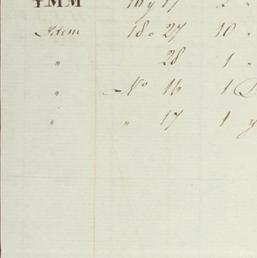 ‡MM 16 y 17 2 "
Item 18 a 27 10 "
" 28 1 "
" Nº 16 1
" " 17 1 y